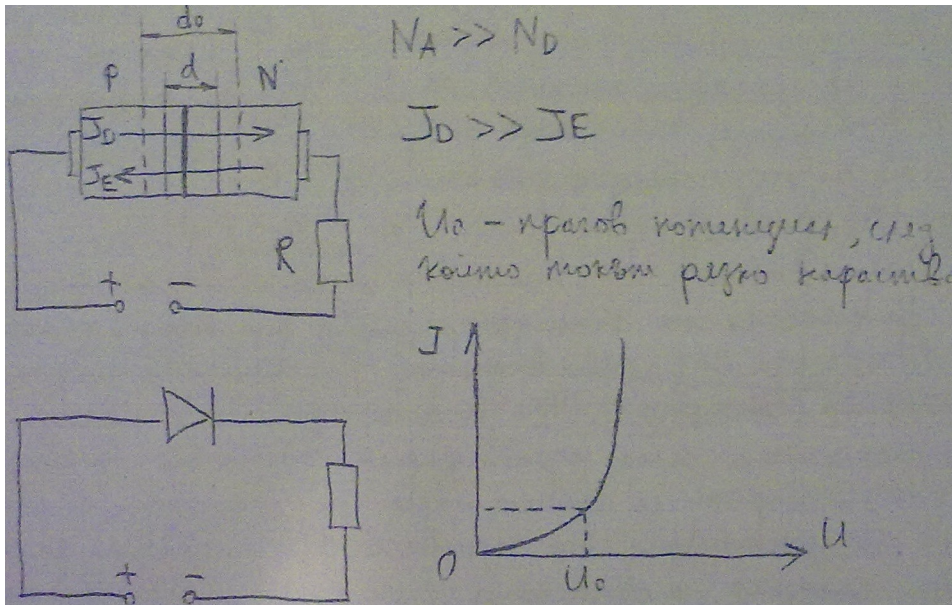 d₀
P d N
J_D
J_E
R
+ −
N_A >> N_D
J_D >> J_E
U₀ – прагов потенциал, след
който токът рязко нараства
+ −
J
O U₀ U